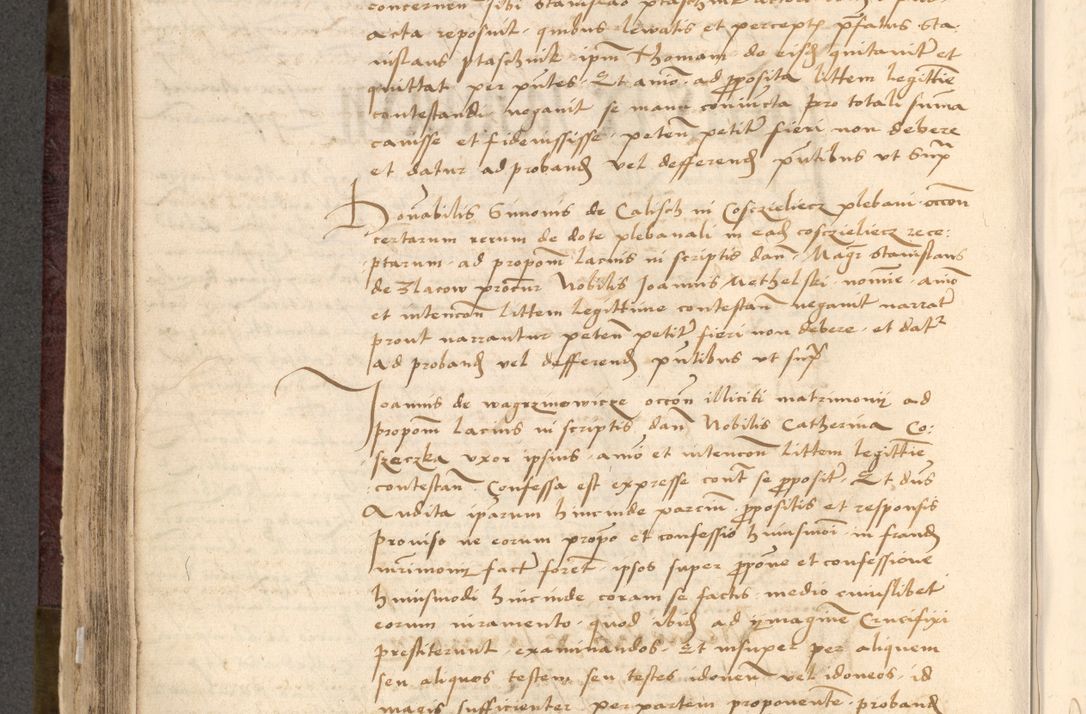 concernen sibi Stanislao ptaschnik
acta reposuit quibus lewatis et perceptis pfatus Sta-
nislaus ptaschnik ipm Thomam de eisd quitavit et
quittat per pntes Et animo ad pposita littem legittie
contestandi negavit se manu coniuncta pro totali suma
cavisse et fideiussisse peten petitr fieri non debere
et datur ad proband vel defferend pntibus ut supra
Honabilis Simonis de Calisch in Cosczieliecz plebani occon
certarum rerum de dote plebanali in ead coscieliecz rece-
ptarum ad propom lacius in scriptis dan Magr Stanislaus
de Zlacow procur Nobilis Joannis Methelski noie animo
et intencon littem legittime contestan negavit narrata
prout narrantur peten petitr fieri non debere et datr
ad proband vel defferend pntibus ut supra
Joannis de wagrzinowicze occon illiciti matrimonii ad
propom lacius in scriptis dan Nobilis Catherina Co-
szeczka uxor ipsius animo et intencon littem legittie
contestan Confessa est expresse cont se ppositr Et dns
Audita iparum hincinde parcium ppositis et responsis
Proviso ne eorum propo et confessio huiusmoi in fraud
mrimonii fact foret ipsos super ppone et confessione
huiusmodi hincinde coram se factis medio cuiuslibet
eorum iuramento quod ibid ad ymaginem Crucifixi
prestiterunt examinandos Et insuper per aliquem
seu aliquos testem seu testes idoneum vel idoneos id
magis sufficienter per partem proponente proband